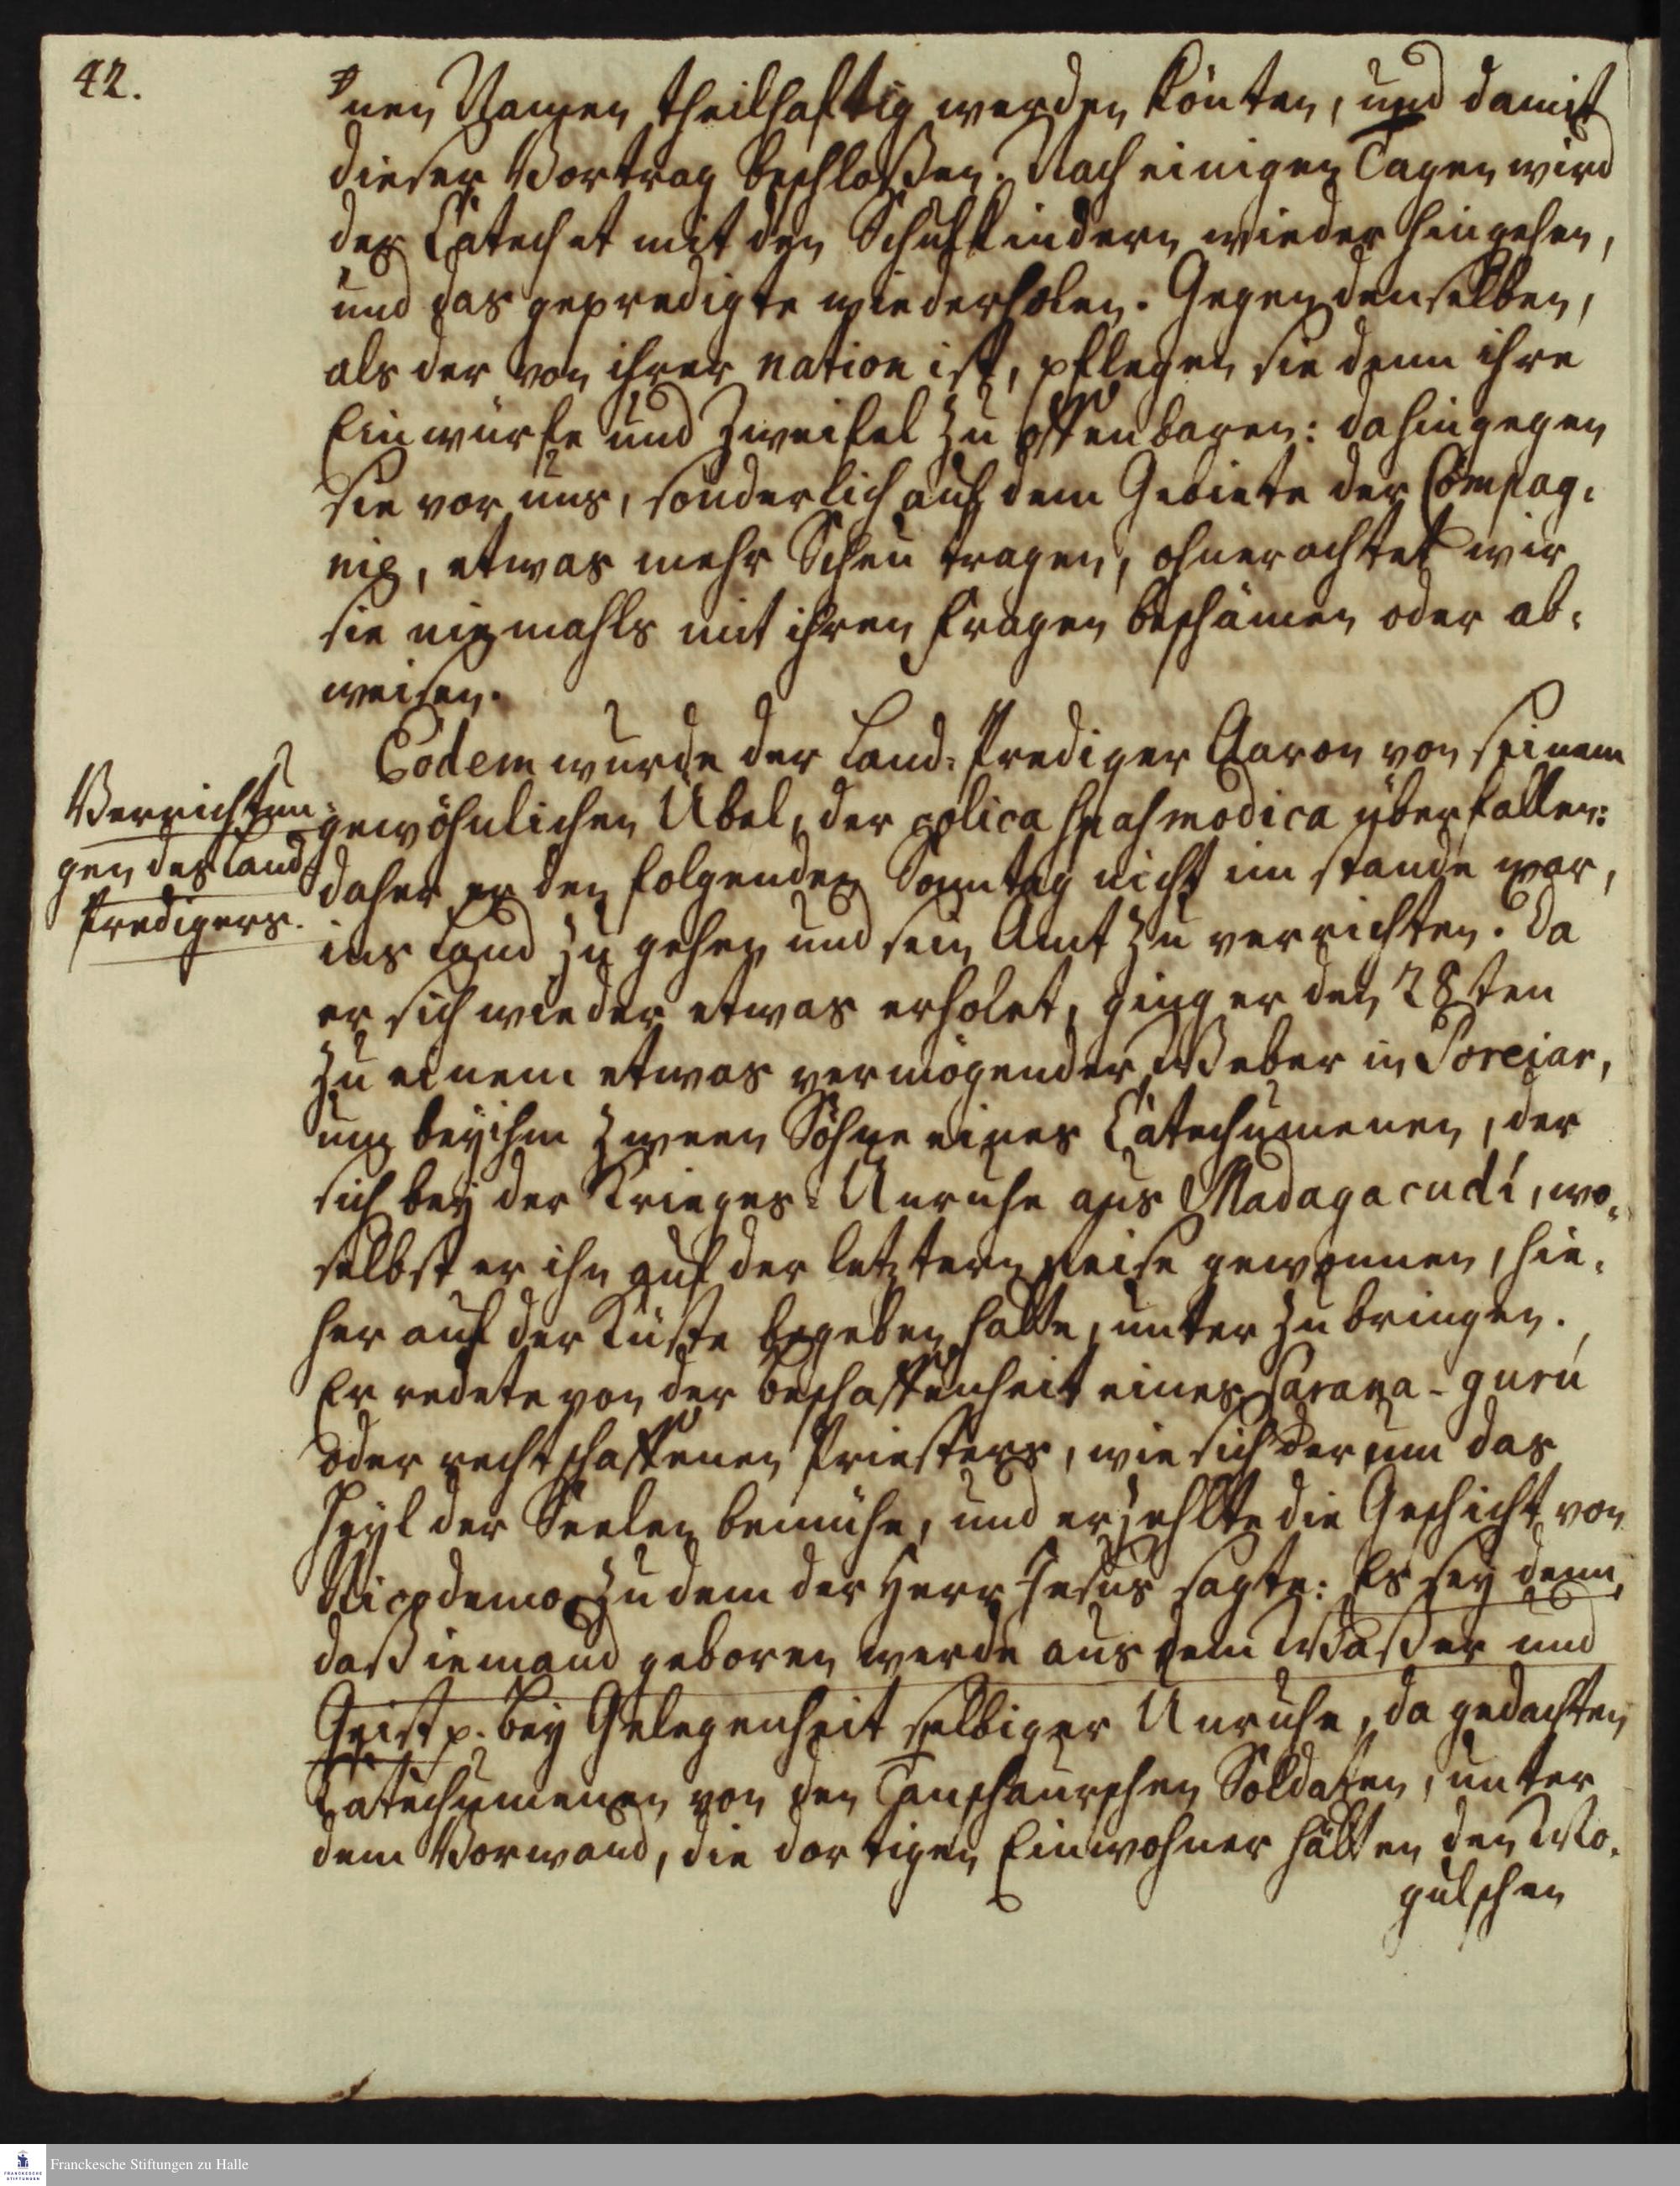 42.
nen Namen theilhaftig werden könten, und damit
dieser Vortrag beschloßen. Nach einigen Tagen wird
der Catechet mit den Schulkindern wieder hingehen,
und das gepredigte wiederholen. Gegen denselben,
als der von ihrer nation ist, pflegen sie denn ihre
Einwürfe und Zweifel zu offenbaren: dahingegen
sie vor uns, sonderlich auf dem Gebiete der Compag-
nie, etwas mehr Scheu tragen, ohnerachtet wir
sie niemahls mit ihren fragen beschämen oder ab-
weisen.
Verrichtun-
gen des Land-
Predigers.
Eodem wurde der Land-Prediger Aaron von seinem
gewöhnlichen Übel, der colica spasmodica überfallen:
daher er den folgenden Sonntag nicht im stande war,
ins Land zu gehen und sein Amt zu verrichten. Da
er sich wieder etwas erholet, ging er den 28sten
zu einem etwas vermögender Weber in Poreiar,
um bey ihm zween Söhne eines Catechumenen, der
sich bey der Krieges-Unruhe aus Madagacudi, wo-
selbst er ihn auf der letztern reise gewonnen, hie-
her auf der Küste begeben hatte, unter zu bringen.
Er redete von der beschaffenheit eines Sarana-guru
oder rechtschaffenen Priesters, wie sich der um das
Heyl der Seelen bemühe, und erzehlte die Geschicht von
Nicodemo, zu dem der Herr Jesus sagte: Es sey denn,
daß iemand geboren werde aus dem Waßer und
Geist p. bey Gelegenheit selbiger Unruhe, da gedachten
Catechumenen von den Tanschaurschen Soldaten, unter
dem Vorwand, die dortigen Einwohner hätten den Mo-
gulschen
Franckesche Stiftungen zu Halle